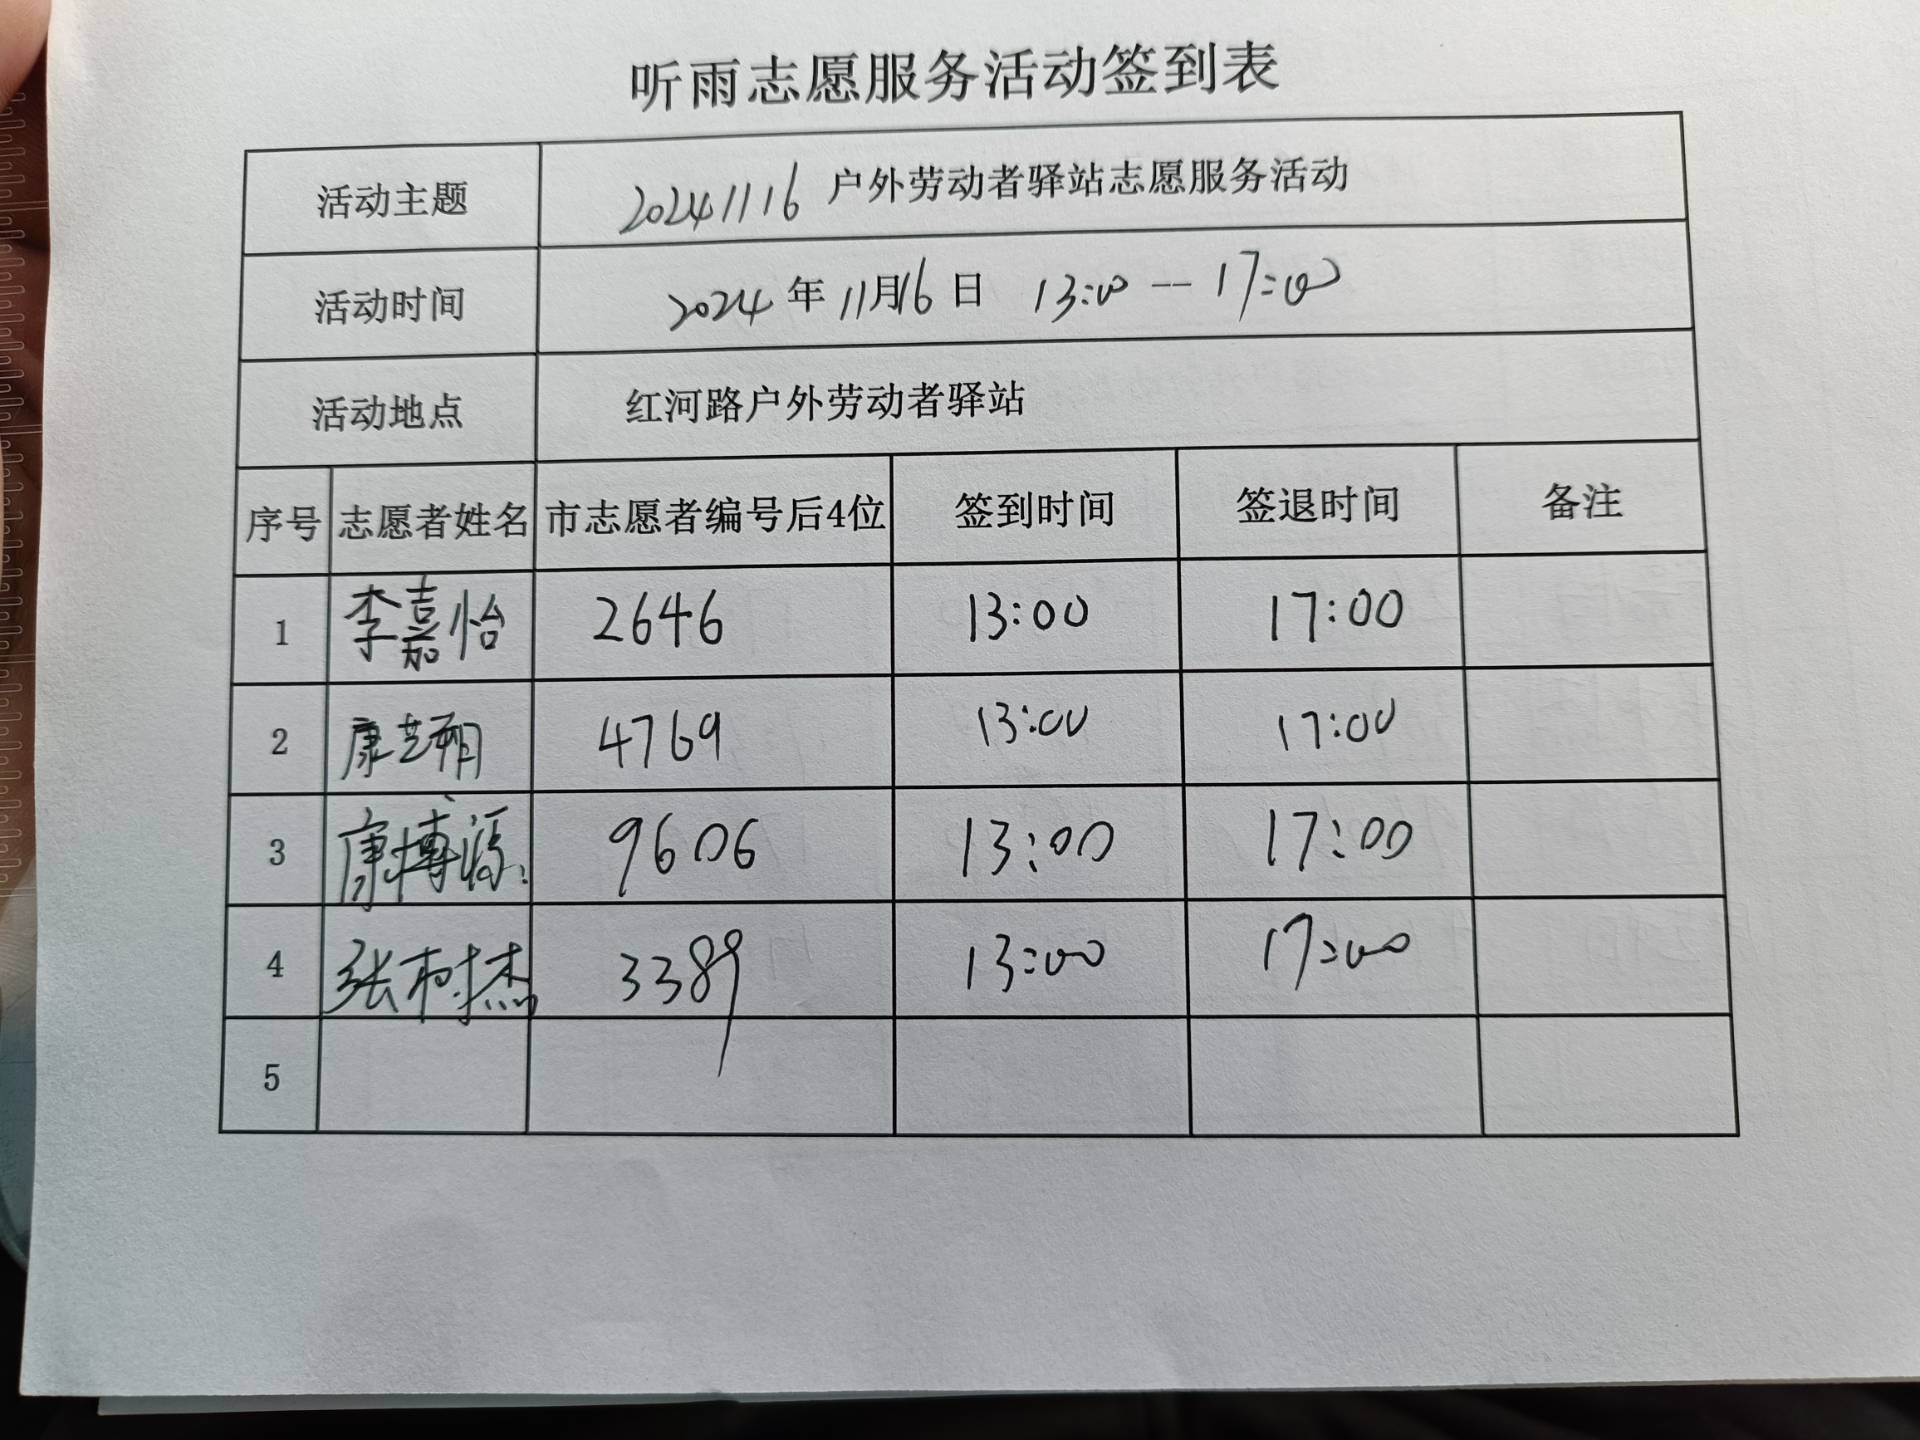 听雨志愿服务活动签到表
活动主题 20241116 户外劳动者驿站志愿服务活动
活动时间 2024年11月16日 13:00--17:00
活动地点 红河路户外劳动者驿站
序号 志愿者姓名 市志愿者编号后4位 签到时间 签退时间 备注
1 李嘉怡 2646 13:00 17:00
2 康艺朔 4769 13:00 17:00
3 康博源 9606 13:00 17:00
4 张树杰 3389 13:00 17:00
5